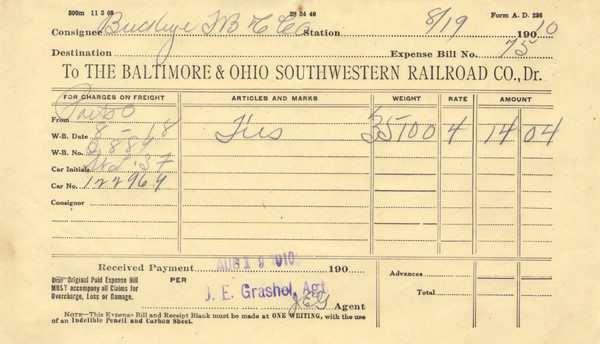 500m 11 3 09 Form A. D. 236
Consignee Buckeye Station 8/19 1900 10
Destination Expense Bill No. 75
To THE BALTIMORE & OHIO SOUTHWESTERN RAILROAD CO., Dr.
FOR CHARGES ON FREIGHT ARTICLES AND MARKS WEIGHT RATE AMOUNT
From
W-B. Date 8-18 Ties 35100 4 14 04
W-B. No.
Car Initials
Car No. 122964
Consignor
Received Payment AUG 19 1910 190 Advances
Original Paid Expense Bill PER
MUST accompany all Claims for J. E. Grashel, Agt. Total
Overcharge, Loss or Damage. JEG Agent
NOTE—This Expense Bill and Receipt Blank must be made at ONE WRITING, with the use
of an Indelible Pencil and Carbon Sheet.